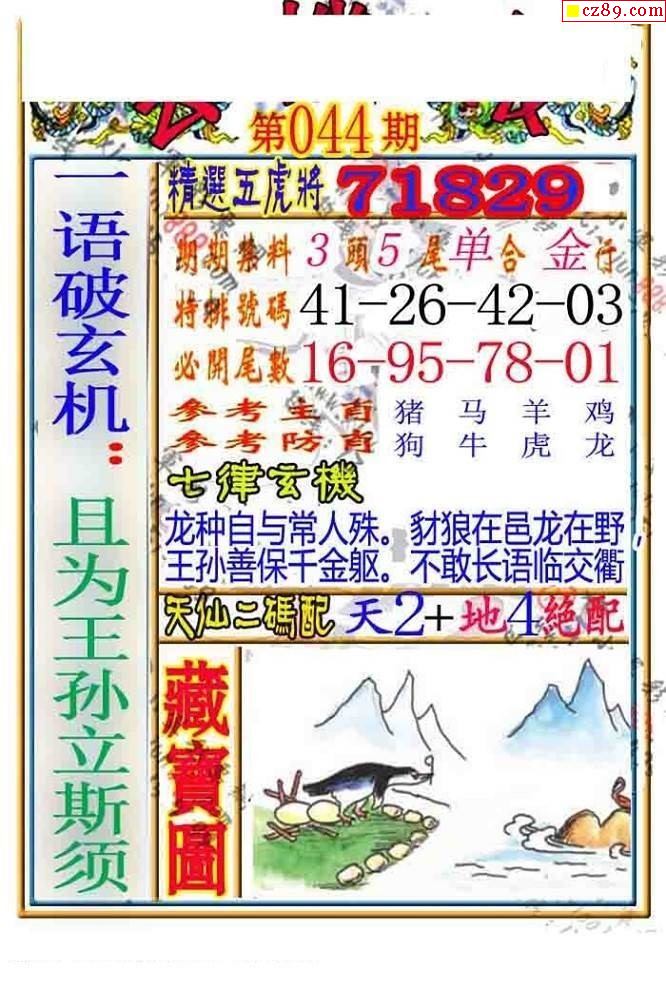 cz89.com
第044期
一语破玄机：
且为王孙立斯须
精選五虎將 71829
期期禁料 3頭5尾单合金行
特排號碼 41-26-42-03
必開尾數 16-95-78-01
参考主肖 猪 马 羊 鸡
参考防肖 狗 牛 虎 龙
七律玄機
龙种自与常人殊。豺狼在邑龙在野，
王孙善保千金躯。不敢长语临交衢
天仙二碼配 天2+地4絕配
藏寶圖